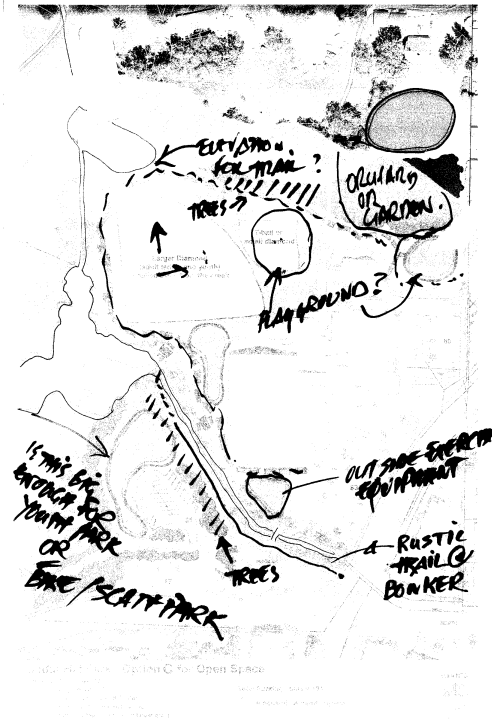 ELEVATION
FOR TRAIL ?
TREES
ORCHARD
OR
GARDEN.
Larger Diamond
PLAYGROUND?
OUTSIDE EXERCISE
EQUIPMENT
IS THIS BIG
ENOUGH FOR
YOUTH PARK
OR
BIKE / SKATE PARK
TREES
RUSTIC
TRAIL @
BONKER
Option C for Open Space